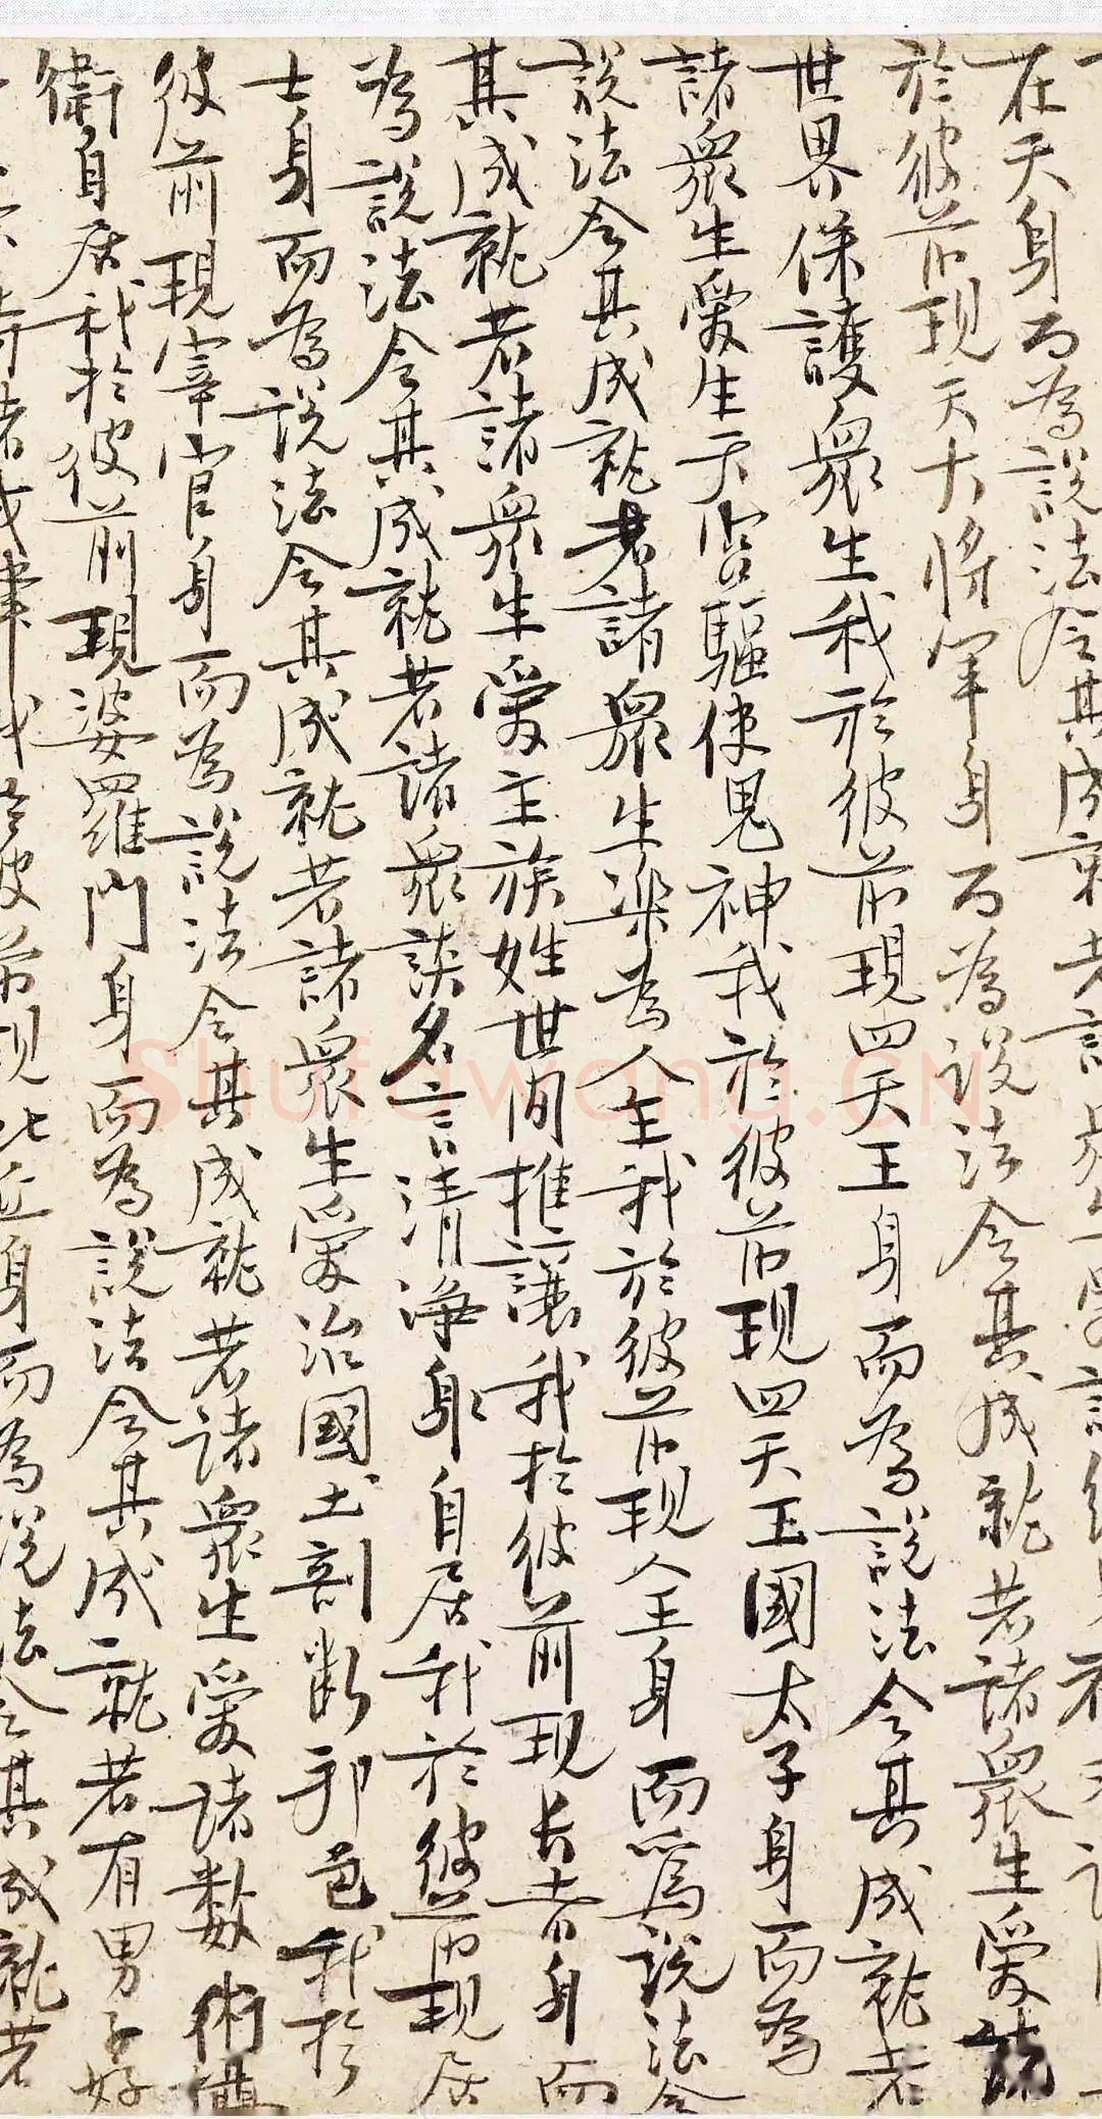 在天身而為說法令其成就若諸
於彼前現天大將軍身而為說法令其成就若諸眾生愛統
世界保護眾生我於彼前現四天王身而為說法令其成就若
諸眾生愛生天宮驅使鬼神我於彼前現四天王國太子身而為
說法令其成就若諸眾生樂為人王我於彼前現人王身而為說法令
其成就若諸眾生愛主族姓世間推讓我於彼前現長者身而
為說法令其成就若諸眾談名言清淨身自居我於彼前現居
士身而為說法令其成就若諸眾生愛治國土剖斷邦邑我於
彼前現宰官身而為說法令其成就若諸眾生愛諸數術攝
衛自居我於彼前現婆羅門身而為說法令其成就若有男子好
彼前現比丘身而為說法令其成就若
shufawang.cn